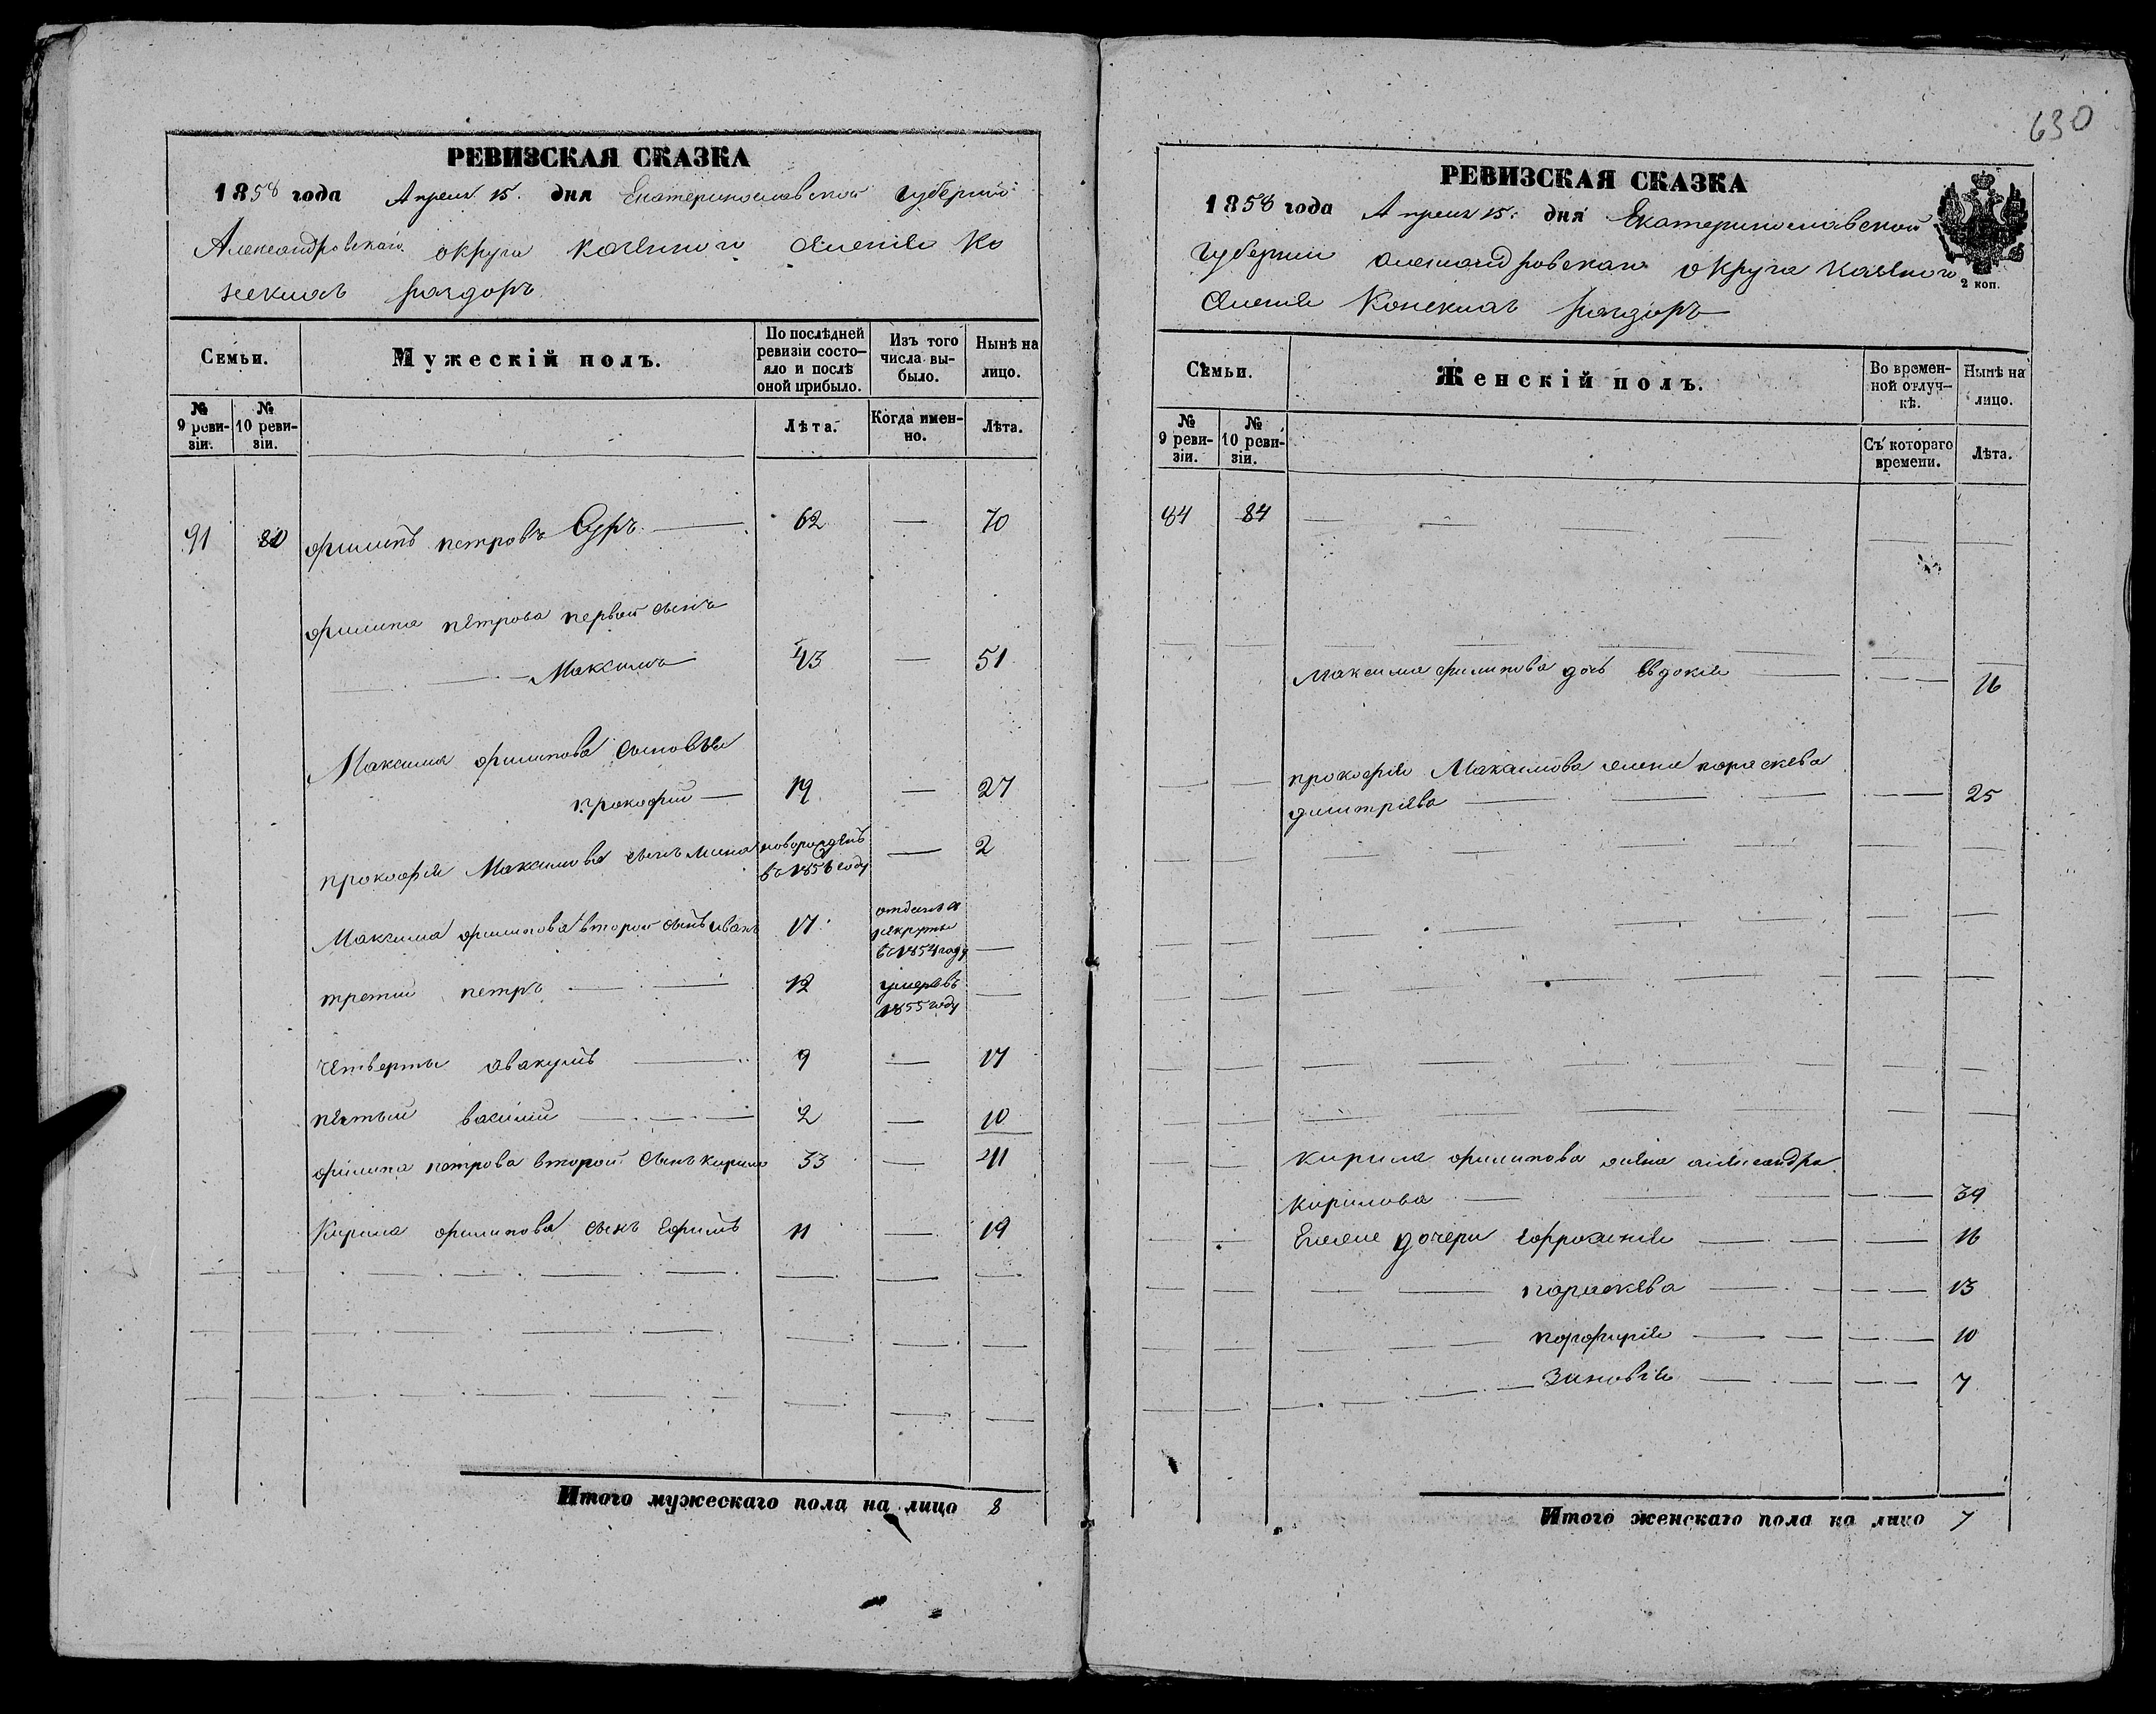 630
РЕВИЗСКАЯ СКАЗКА
1858 года Апреля 15. дня Екатеринославской губернии
Александровскаго округа казенного селенія Ко
нскихъ раздоръ
Семьи.
Мужескій полъ.
По послѣдней ревизіи состо-
яло и послѣ оной прибыло.
Изъ того числа вы-
было.
Нынѣ на лицо.
№ 9 реви-
зіи.
№ 10 реви-
зіи.
Лѣта.
Когда имен-
но.
Лѣта.
91 80 филипъ петровъ Суръ — 62 — 70
филипа петрова первой сынъ
Максимъ 43 — 51
Максима филипова сыновья
прокофий — 19 — 27
прокофія Максимова сынъ мина новорожденъ — 2
въ 1856 году
Максима филипова второй сынъ иванъ 17 отданъ в
рекруты
въ 1854 году —
третий петръ — 12 умеръ въ —
1855 году
четверты авакумъ — 9 — 17
пятый василий — 2 — 10
филипа петрова второй сынъ кирило 33 — 41
Кирила филипова сынъ Ефимъ 11 — 19
Итого мужескаго пола на лицо 8
РЕВИЗСКАЯ СКАЗКА
1858 года Апреля 15. дня Екатеринославской
губернии александровскаго округа казенного
2 коп.
селенія Конскихъ раздоръ
Семьи.
Женскій полъ.
Во времен-
ной отлуч-
кѣ.
Нынѣ на лицо.
№ 9 реви-
зіи.
№ 10 реви-
зіи.
Съ котораго времени.
Лѣта.
84 84
Максима филипова дочь евдокія — 16
прокофія Максимова жена параскева
димитріева — 25
кирила филипова жена александра
кирилова — 39
дочери ефросинія — 16
параскева — 13
порфирія — 10
Зиновія — 7
Итого женскаго пола на лицо 7